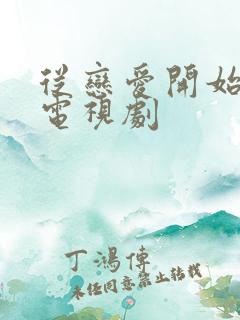 從戀愛開始
電視劇
丁鴻傳
未經同意禁止轉載